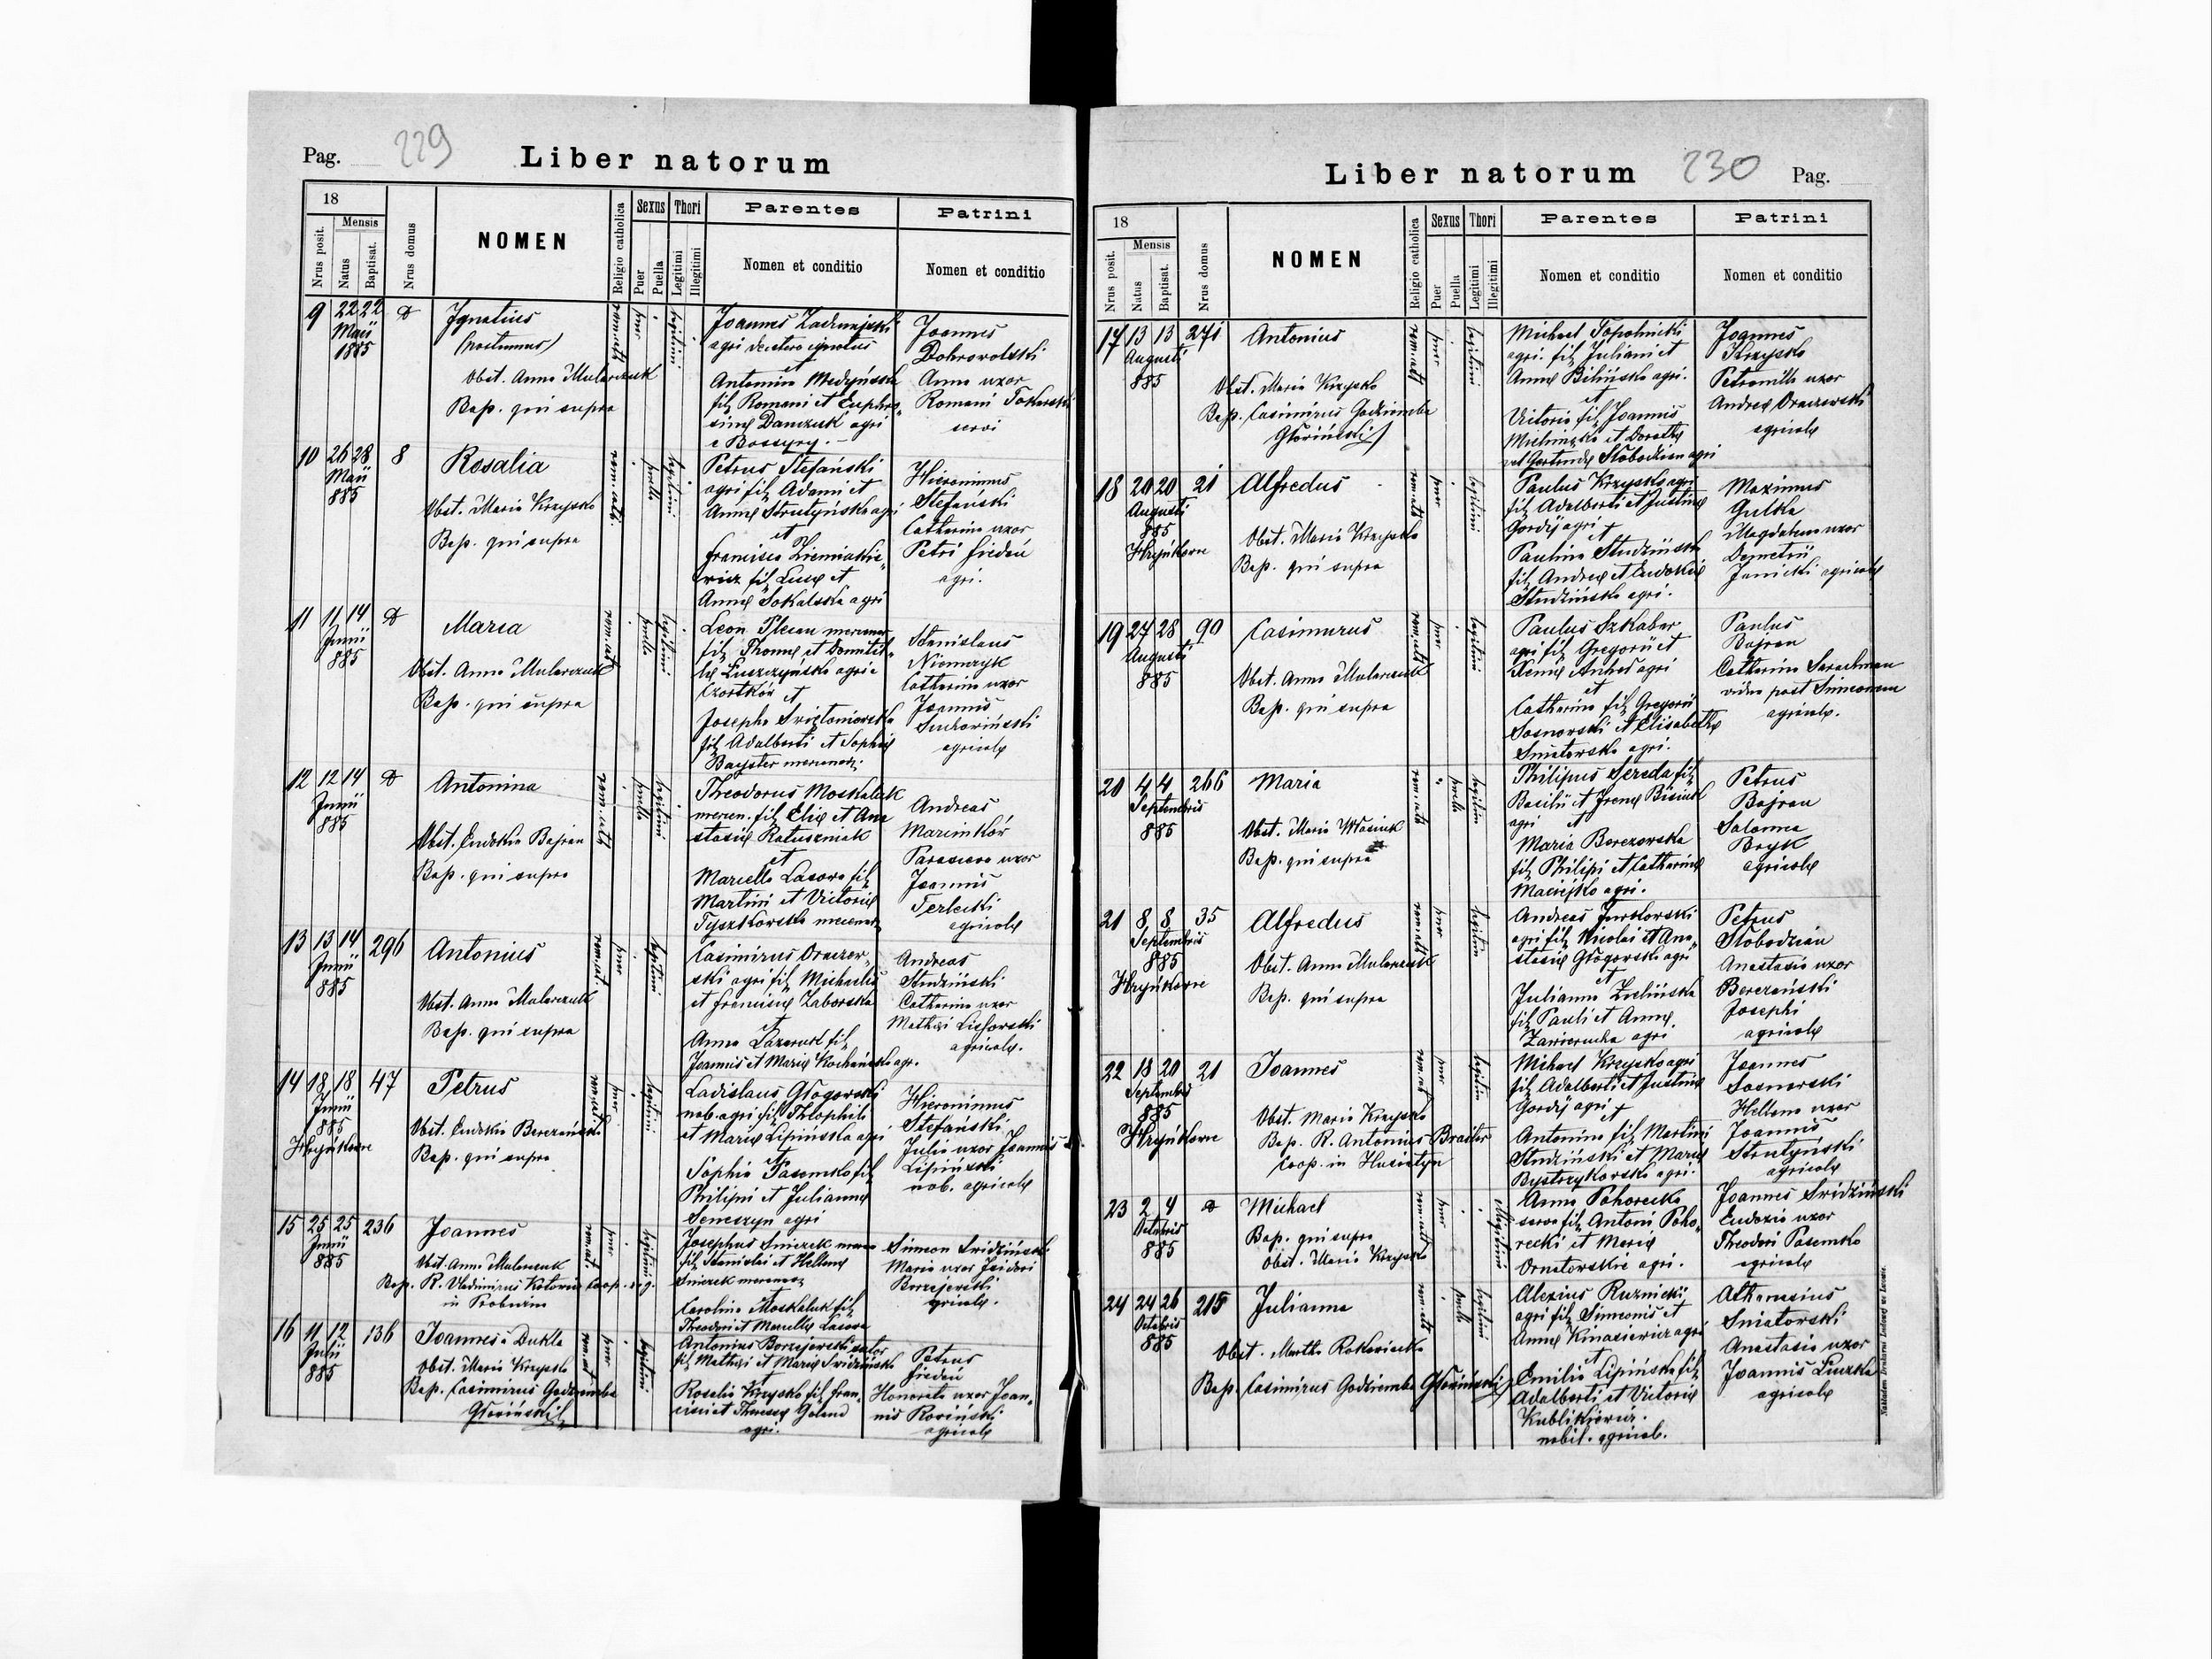 Pag. 229
Liber natorum
18
Mensis
Nrus posit.
Natus
Baptisat.
Nrus domus
NOMEN
Religio catholica
Sexus
Puer
Puella
Thori
Legitimi
Illegitimi
Parentes
Nomen et conditio
Patrini
Nomen et conditio
9 22 22
Maii
1885
Ignatius
(postumus)
Obst. Anna Mularczuk
Bap. qui supra
rom. cath.
puer
legitimi
Joannes
agri
et
Antonina Medyńska
fil. Romani et Euphro„
sinę Danczuk agri
e Bossyry. -
Joannes
Dobrowolski
Anna uxor
Romani Tokarski
servi
10 26 28 8
Maii
885
Rosalia
Obst. Maria Krzysko
Bap. qui supra
rom. cath.
puella
legitimi
Petrus Stefański
agri fil. Adami et
Annę Strutyńska agri
et
Francisca Ziemiakie„
wicz fil. Lucę et
Annę Sokalska agri
Hieronimus
Stefański
Catharina uxor
Petri Fiedeń
agri.
11 11 14
Junii
885
Maria
Obst. Anna Mularczuk
Bap. qui supra
rom. cath.
puella
legitimi
Leon Plesau mercenar
fil. Thomę et Domitil„
lę Łuszczyńska agri e
Czortków et
Josepha Swiętoniowska
fil. Adalberti et Sophię
Bayster mercenar.
Stanislaus
Niemczyk
Catharina uxor
Joannis
Suchowiński
agricolę
12 12 14
Junii
885
Antonina
Obst. Eudokia Bajran
Bap. qui supra
rom. cath
puella
legitimi
Theodorus Moskaluk
mercen. fil. Elię et Ana
stasię Ratuszniak
et
Marcella Lasowa fil.
Martini et Victorię
Tyszkowska mercenar
Andreas
Marcinków
Parascewa uxor
Joannis
Terlecki
agricolę
13 13 14 296
Junii
885
Antonius
Obst. Anna Mularczuk
Bap. qui supra
rom. cat.
puer
legitimi
Casimirus Oraczew„
ski agri fil. Michaelis
et Franciscę Zaborska
et
Anna Łazaruk fil.
Joannis et Marię Kochańska agr.
Andreas
Studziński
Catharina uxor
Mathęi Lichowski
agricolę.
14 18 18 47
Junii
885
Hryńkowce
Petrus
Obst. Eudokia Berezański
Bap. qui supra
rom. cath.
puer
legitimi
Ladislaus Głogowski
nob. agri fil. Theophili
et Marię Lipińska agri
et
Sophia Pasemko fil.
Philipi et Juliannę
Senczyn agri
Hieronimus
Stefański
Julia uxor Joannis
Lipiński
nob. agricolę
15 25 25 236
Junii
885
Joannes
Obst. Anna Mularczuk
Bap. R. Vladimirus coop. r. g.
in Probuzna
rom. cat.
puer
legitimi
Josephus Smerek merce
fil. Stanislai et Hellenę
Smerek mercenar
Carolina Moskaluk fil.
Theodori et Marcellę Lasowa
Simeon Swidziński
Maria uxor Isidori
Borzejewski
agricolę.
16 11 12 136
Julii
885
Joannes à Dukla
Obst. Maria Krzysko
Bap. Casimirus Godziemba
Głowiński
rom. cat.
puer
legitimi
Antonius Borzejewski sutor
fil. Mathęi et Marię Swidzińska
et
Rosalia Krzysko fil. Fran„
cisci et Theresę Goland
agri.
Petrus
Fiedeń
Honorata uxor Joan„
nis Rowiński
agricolę
Liber natorum
230 Pag.
18
Mensis
Nrus posit.
Natus
Baptisat.
Nrus domus
NOMEN
Religio catholica
Sexus
Puer
Puella
Thori
Legitimi
Illegitimi
Parentes
Nomen et conditio
Patrini
Nomen et conditio
17 13 13 271
Augusti
885
Antonius
Obst. Maria Krzysko
Bap. Casimirus Godziemba
Głowiński
rom. cath
puer
legitimi
Michael Topolnicki
agri. fil. Juliani et
Annę Bilińska agri.
et
Victoria fil. Joannis
et Dorothę
vel Gertrudę Słobodzian agri
Joannes
Krzysko
Petronilla uxor
Andreę Oraczewski
agricolę
18 20 20 21
Augusti
885
Hryńkowce
Alfredus
Obst. Maria Krzysko
Bap. qui supra
rom. cath
puer
legitimi
Paulus Krzysko agri
fil. Adalberti et Justinę
Gordij agri et
Paulina Studzińska
fil. Andreę et Eudokię
Studzińska agri.
Maximus
Gulka
Magdalena uxor
Demetrii
Janicki agricolę
19 27 28 90
Augusti
885
Casimirus
Obst. Anna Mularczuk
Bap. qui supra
rom. cath
puer
legitimi
Paulus Szkabar
agri fil. Gregorii et
Xenię Antkow agri
et
Catharina fil. Gregorii
Sosnowski et Elisabethę
Sniatowska agri.
Paulus
Bajran
Catharina Serachman
vidua post Simeonem
agricolę.
20 4 4 266
Septembris
885
Maria
Obst. Maria Własiuk
Bap. qui supra
rom. cath
puella
legitimi
Philipus Sereda fil.
Basilii et Irenę
agri et
Maria Berezowska
fil. Philipi et Catharinę
Maciejko agri.
Petrus
Bajran
Salomea
Bryk
agricolę
21 8 8 35
Septembris
885
Hryńkowce
Alfredus
Obst. Anna Mularczuk
Bap. qui supra
rom. cath
puer
legitimi
Andreas Jurkowski
agri fil. Nicolai et Ana„
stasię Głogowska agri
et
Julianna Zielińska
fil. Pauli et Annę
Zawierucha agri
Petrus
Słobodzian
Anastasia uxor
Berezański
Josephi
agricolę
22 18 20 21
Septembris
885
Hryńkowce
Joannes
Obst. Maria Krzysko
Bap. R. Antonius Braiter
Coop. in Husiatyn
rom. cath
puer
legitimi
Michael Krzysko agri
fil. Adalberti et Justinę
Gordij agri et
Antonina fil. Martini
Studziński et Marię
Bystrzykowska agri.
Joannes
Sosnowski
Hellena uxor
Joannis
Strutyński
agricolę
23 2 4
Octobris
885
Michael
Bap. qui supra
Obst. Maria Krzysko
rom. cath
puer
illegitimi
Anna Pohorecka
serva fil. Antoni Poho„
recki et Marię
Ornatowskię agri.
Joannes Swidziński
Eudoxia uxor
Theodori Pasemko
agricolę
24 24 26 215
Octobris
885
Julianna
Obst. Martha Rakowiecka
Bap. Casimirus Godziemba Głowiński
rom. cath
puella
legitimi
Alexius Ruznicki
agri fil. Simeonis et
Annę Kinasiewicz agri
et
Emilia Lipińska fil.
Adalberti et Victorię
Kublikiewicz.
nobil. agricol.
Athanasius
Sniatowski
Anastasia uxor
Joannis Luczka
agricolę
Nakładem Drukarni Ludowej we Lwowie.